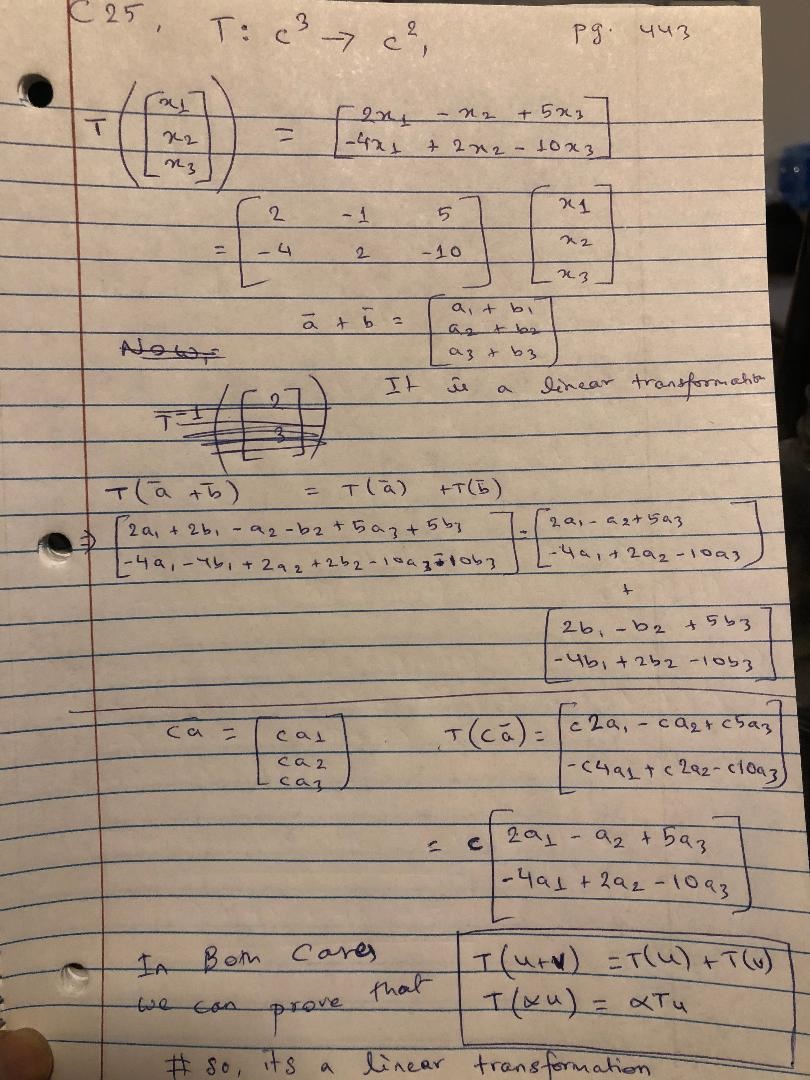 C 25, T: C³ → C², pg. 443
T([x1 x2 x3]) = [2x1 - x2 + 5x3
-4x1 + 2x2 - 10x3]
= [2 -1 5
-4 2 -10] [x1 x2 x3]
ā + b̄ = [a1 + b1
a2 + b2
a3 + b3]
Now,
It is a linear transformation
T⁻¹([2 3])
T(ā + b̄) = T(ā) + T(b̄)
⇒ [2a1 + 2b1 - a2 - b2 + 5a3 + 5b3
-4a1 - 4b1 + 2a2 + 2b2 - 10a3 - 10b3] = [2a1 - a2 + 5a3
-4a1 + 2a2 - 10a3]
+
[2b1 - b2 + 5b3
-4b1 + 2b2 - 10b3]
cā = [ca1
ca2
ca3]
T(cā) = [c2a1 - ca2 + c5a3
-c4a1 + c2a2 - c10a3]
= c [2a1 - a2 + 5a3
-4a1 + 2a2 - 10a3]
In Both Cases
we can prove that
T(u+v) = T(u) + T(v)
T(αu) = αTu
# so, its a linear transformation